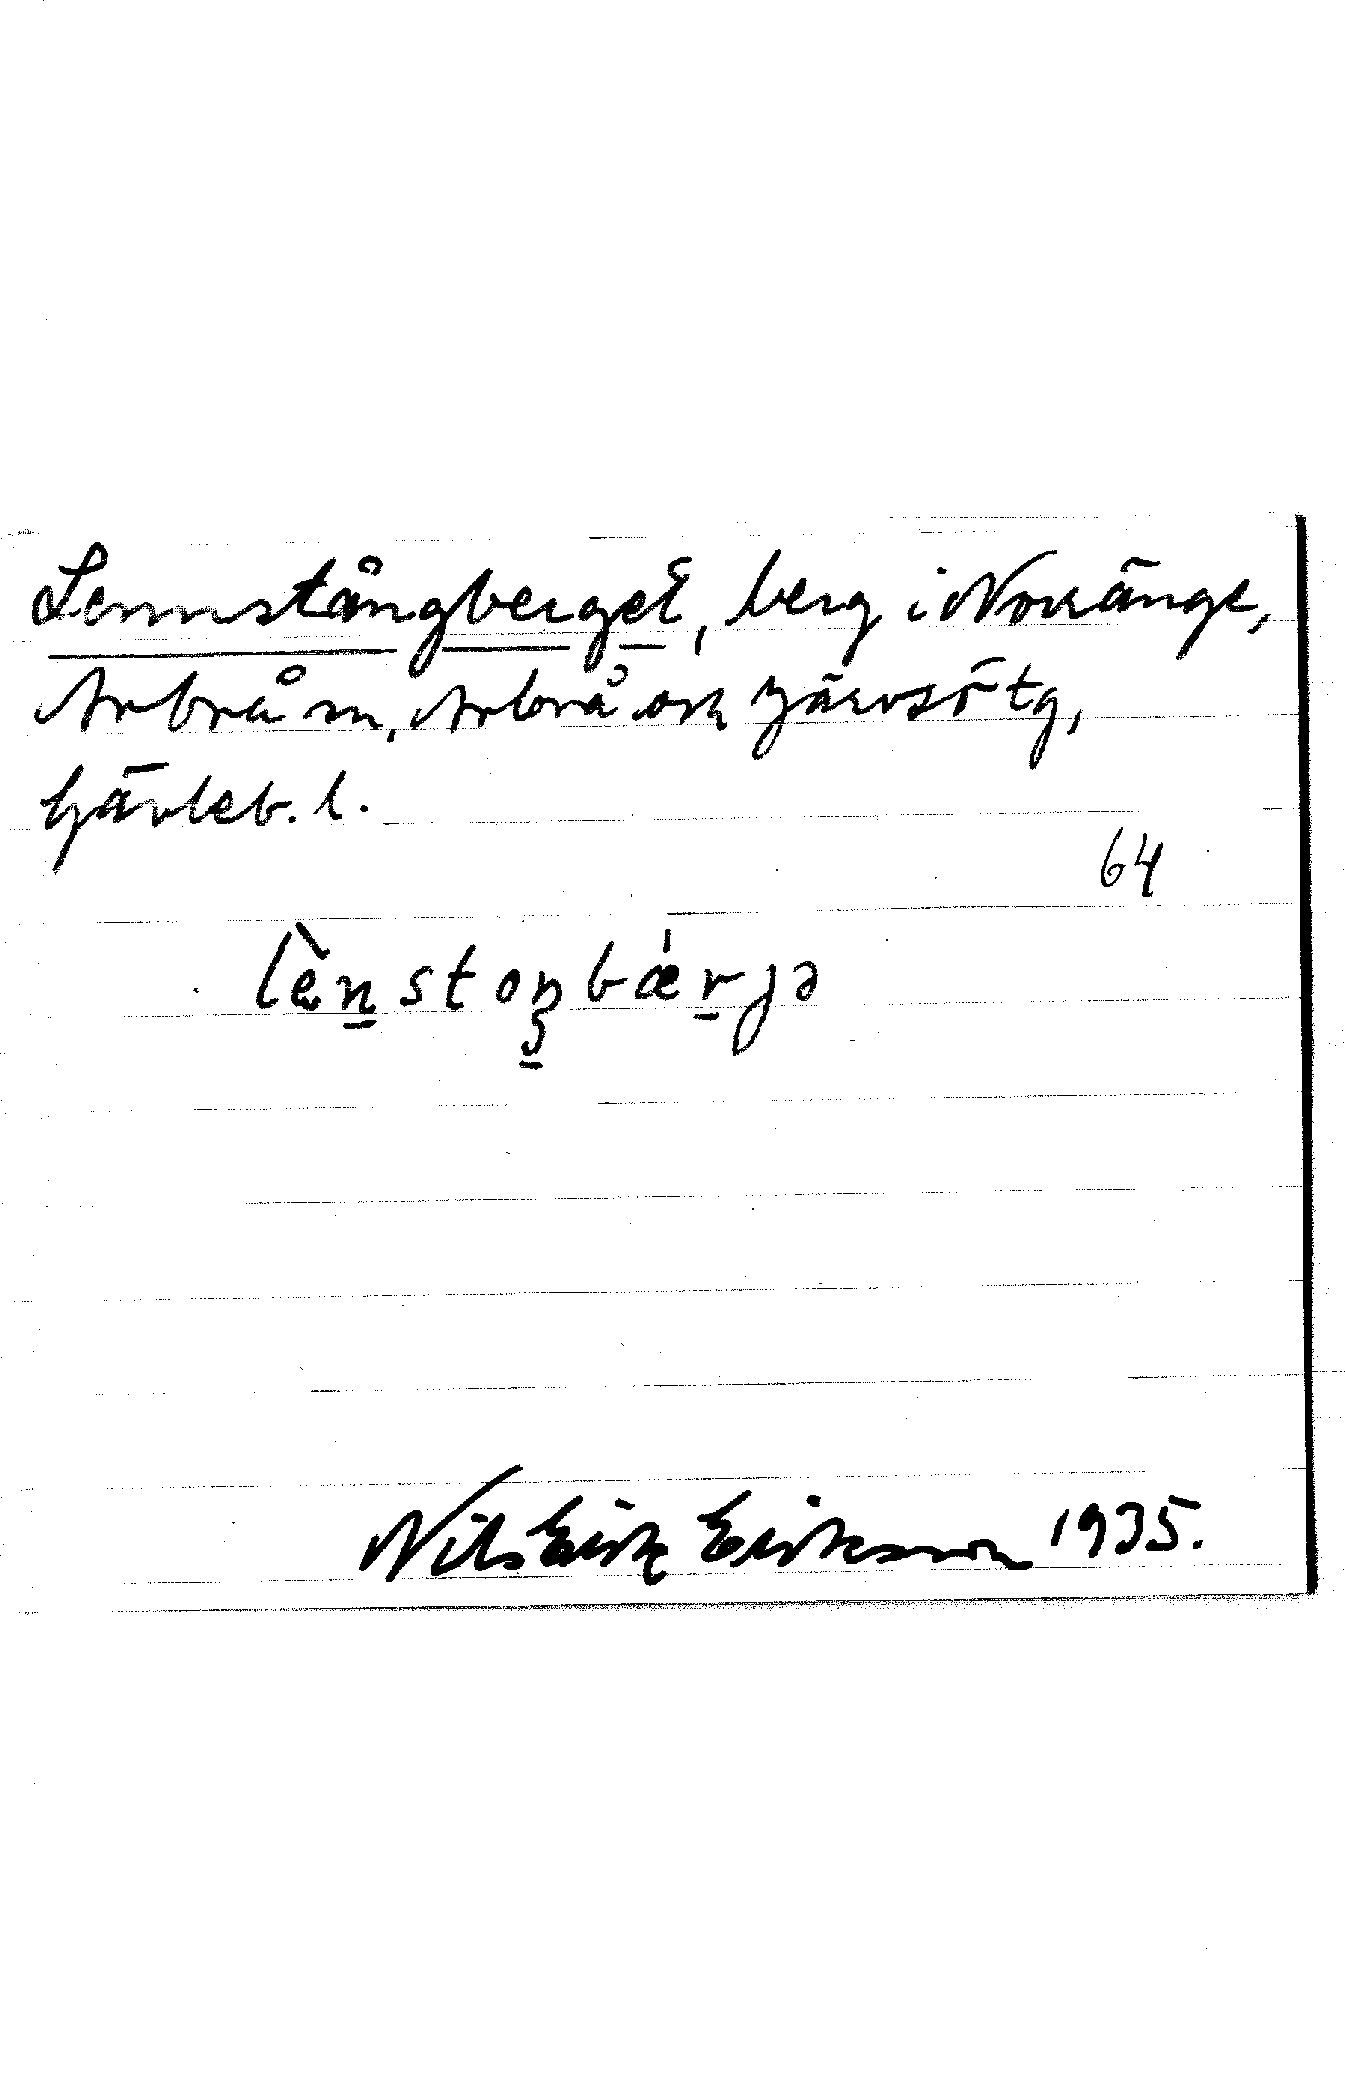 Lennstångberget, berg i Norränge,
Arbrå sn, Arbrå och Järvsö tg,
Gävleb. l.
64
lènstoŋbǽrjə
Nils Erik Eriksson 1935.